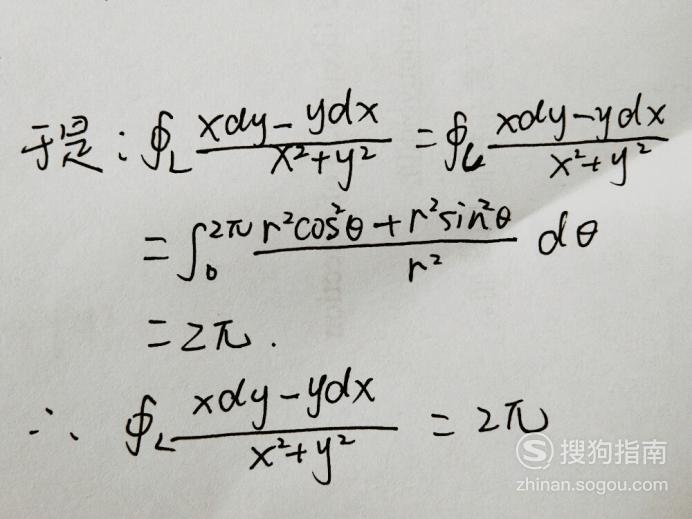 于是：∮L (xdy-ydx)/(x²+y²) = ∮L (xdy-ydx)/(x²+y²)
= ∫₀^2π (r²cos²θ+r²sin²θ)/r² dθ
= 2π.
∴ ∮L (xdy-ydx)/(x²+y²) = 2π
搜狗指南
zhinan.sogou.com